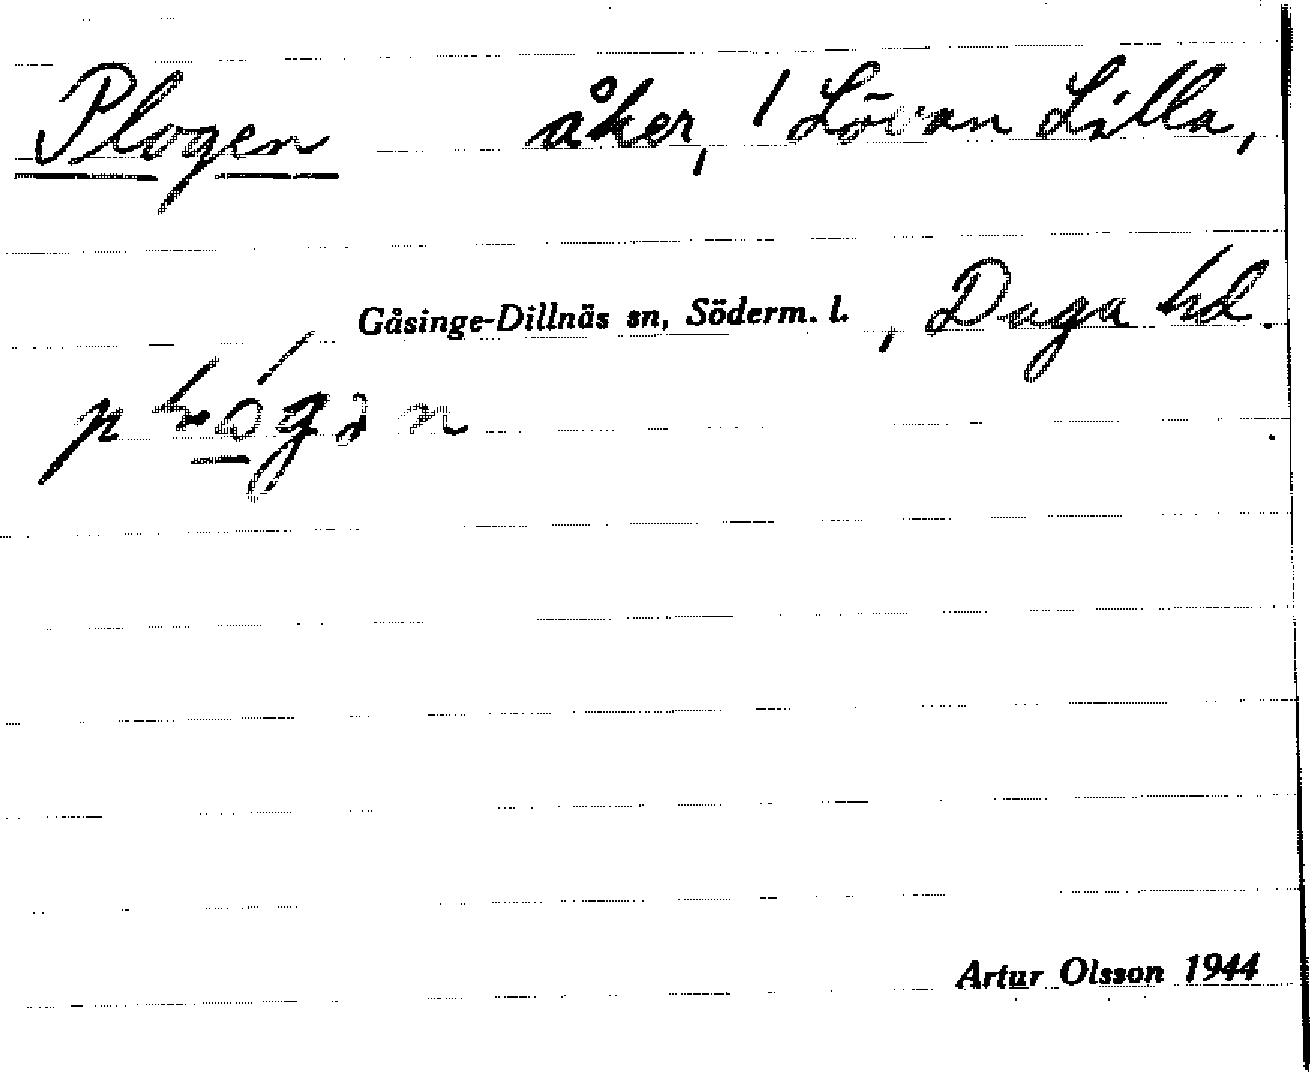 Plogen åker, 1 Lövan Lilla,
Gåsinge-Dillnäs sn, Söderm. l., Daga hd.
Artur Olsson 1944